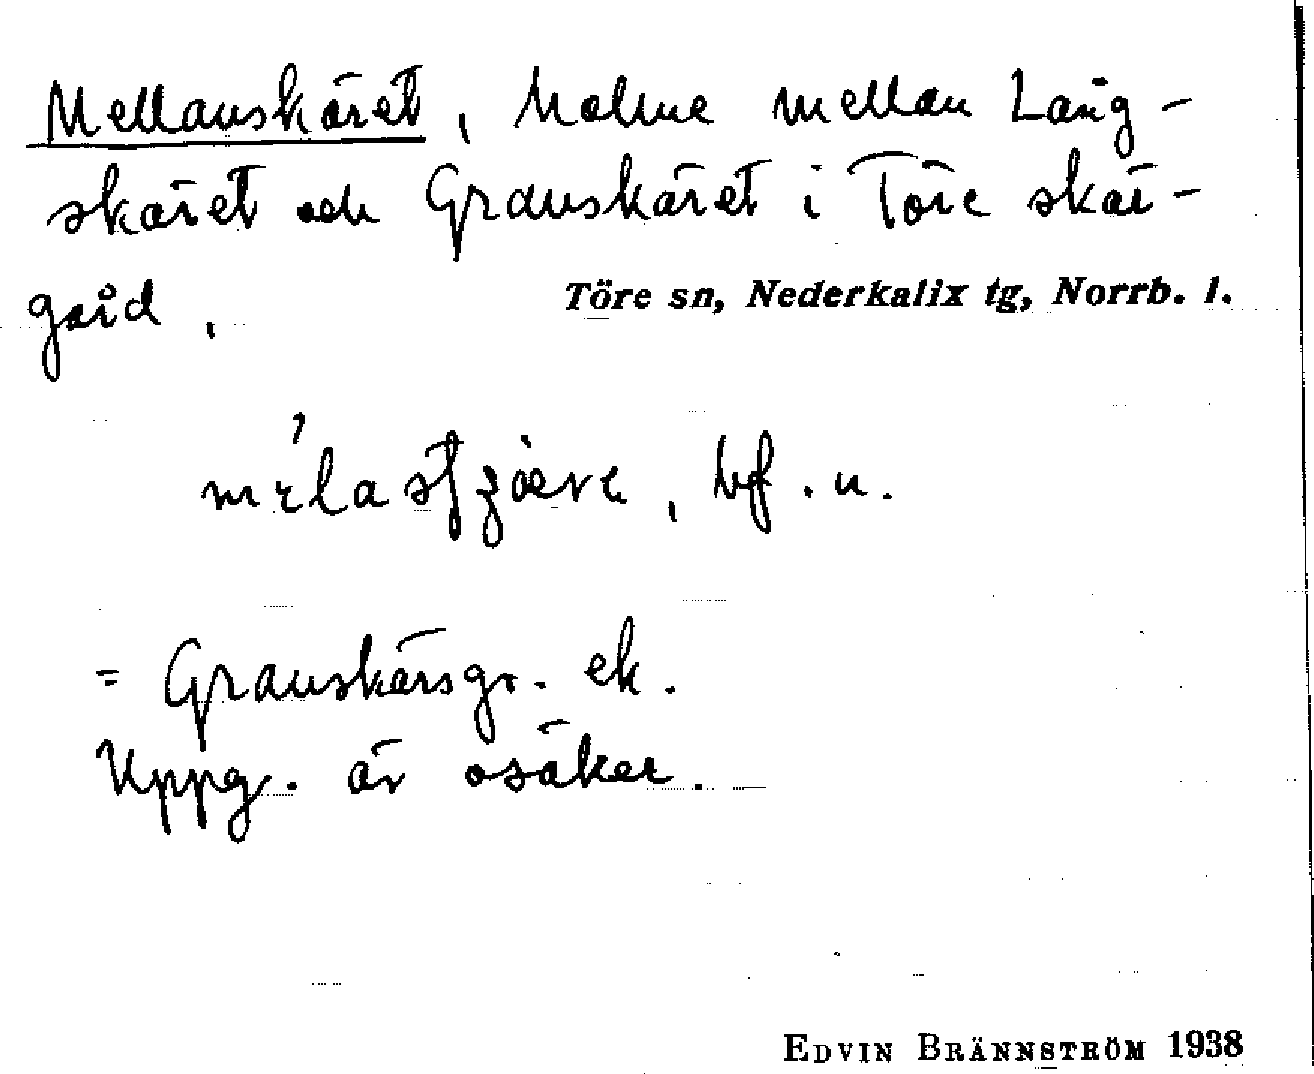 Mellanskäret, holme mellan Lång-
skäret och Granskäret i Töre skär-
gård.
Töre sn, Nederkalix tg, Norrb. l.
bf. n.
= Granskärsgr. ek.
Uppg. är osäker.
EDVIN BRÄNNSTRÖM 1938